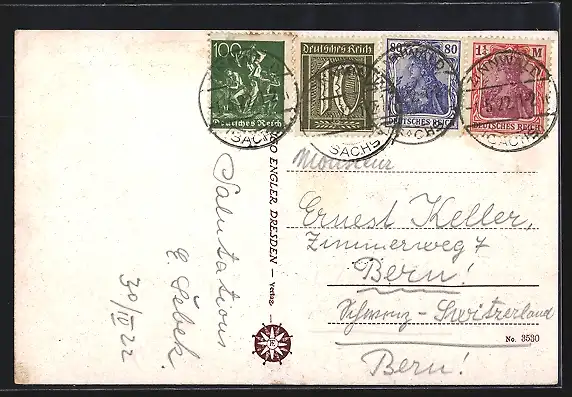 100
Deutsches Reich
Deutsches Reich
80 80
DEUTSCHES REICH
1¼ M
DEUTSCHES REICH
(SACHS)
SACHS
Monsieur
Ernest Keller,
Zimmerweg 7
Bern!
Schweiz-Switzerland
Bern!
No. 3530
ENGLER DRESDEN — Verlag
Salutations
30/IV 22